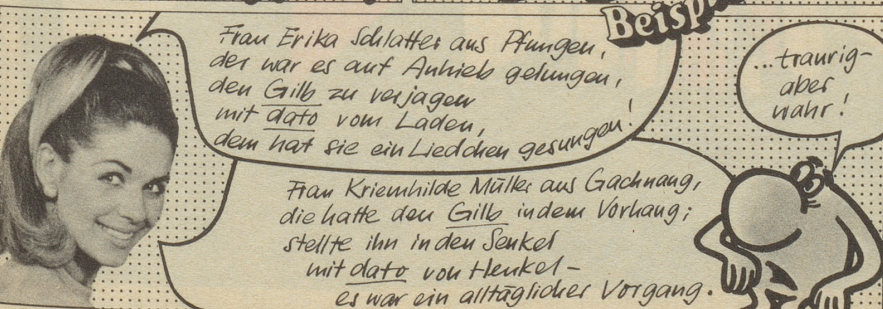 Beisp
Frau Erika Schlatter aus Pfungen,
der war es auf Anhieb gelungen,
den Gilb zu verjagen
mit dato vom Laden,
dem hat sie ein Liedchen gesungen!
Frau Kriemhilde Müller aus Gachnang,
die hatte den Gilb in dem Vorhang;
stellte ihn in den Senkel
mit dato von Henkel–
es war ein alltäglicher Vorgang.
...traurig–
aber
wahr!